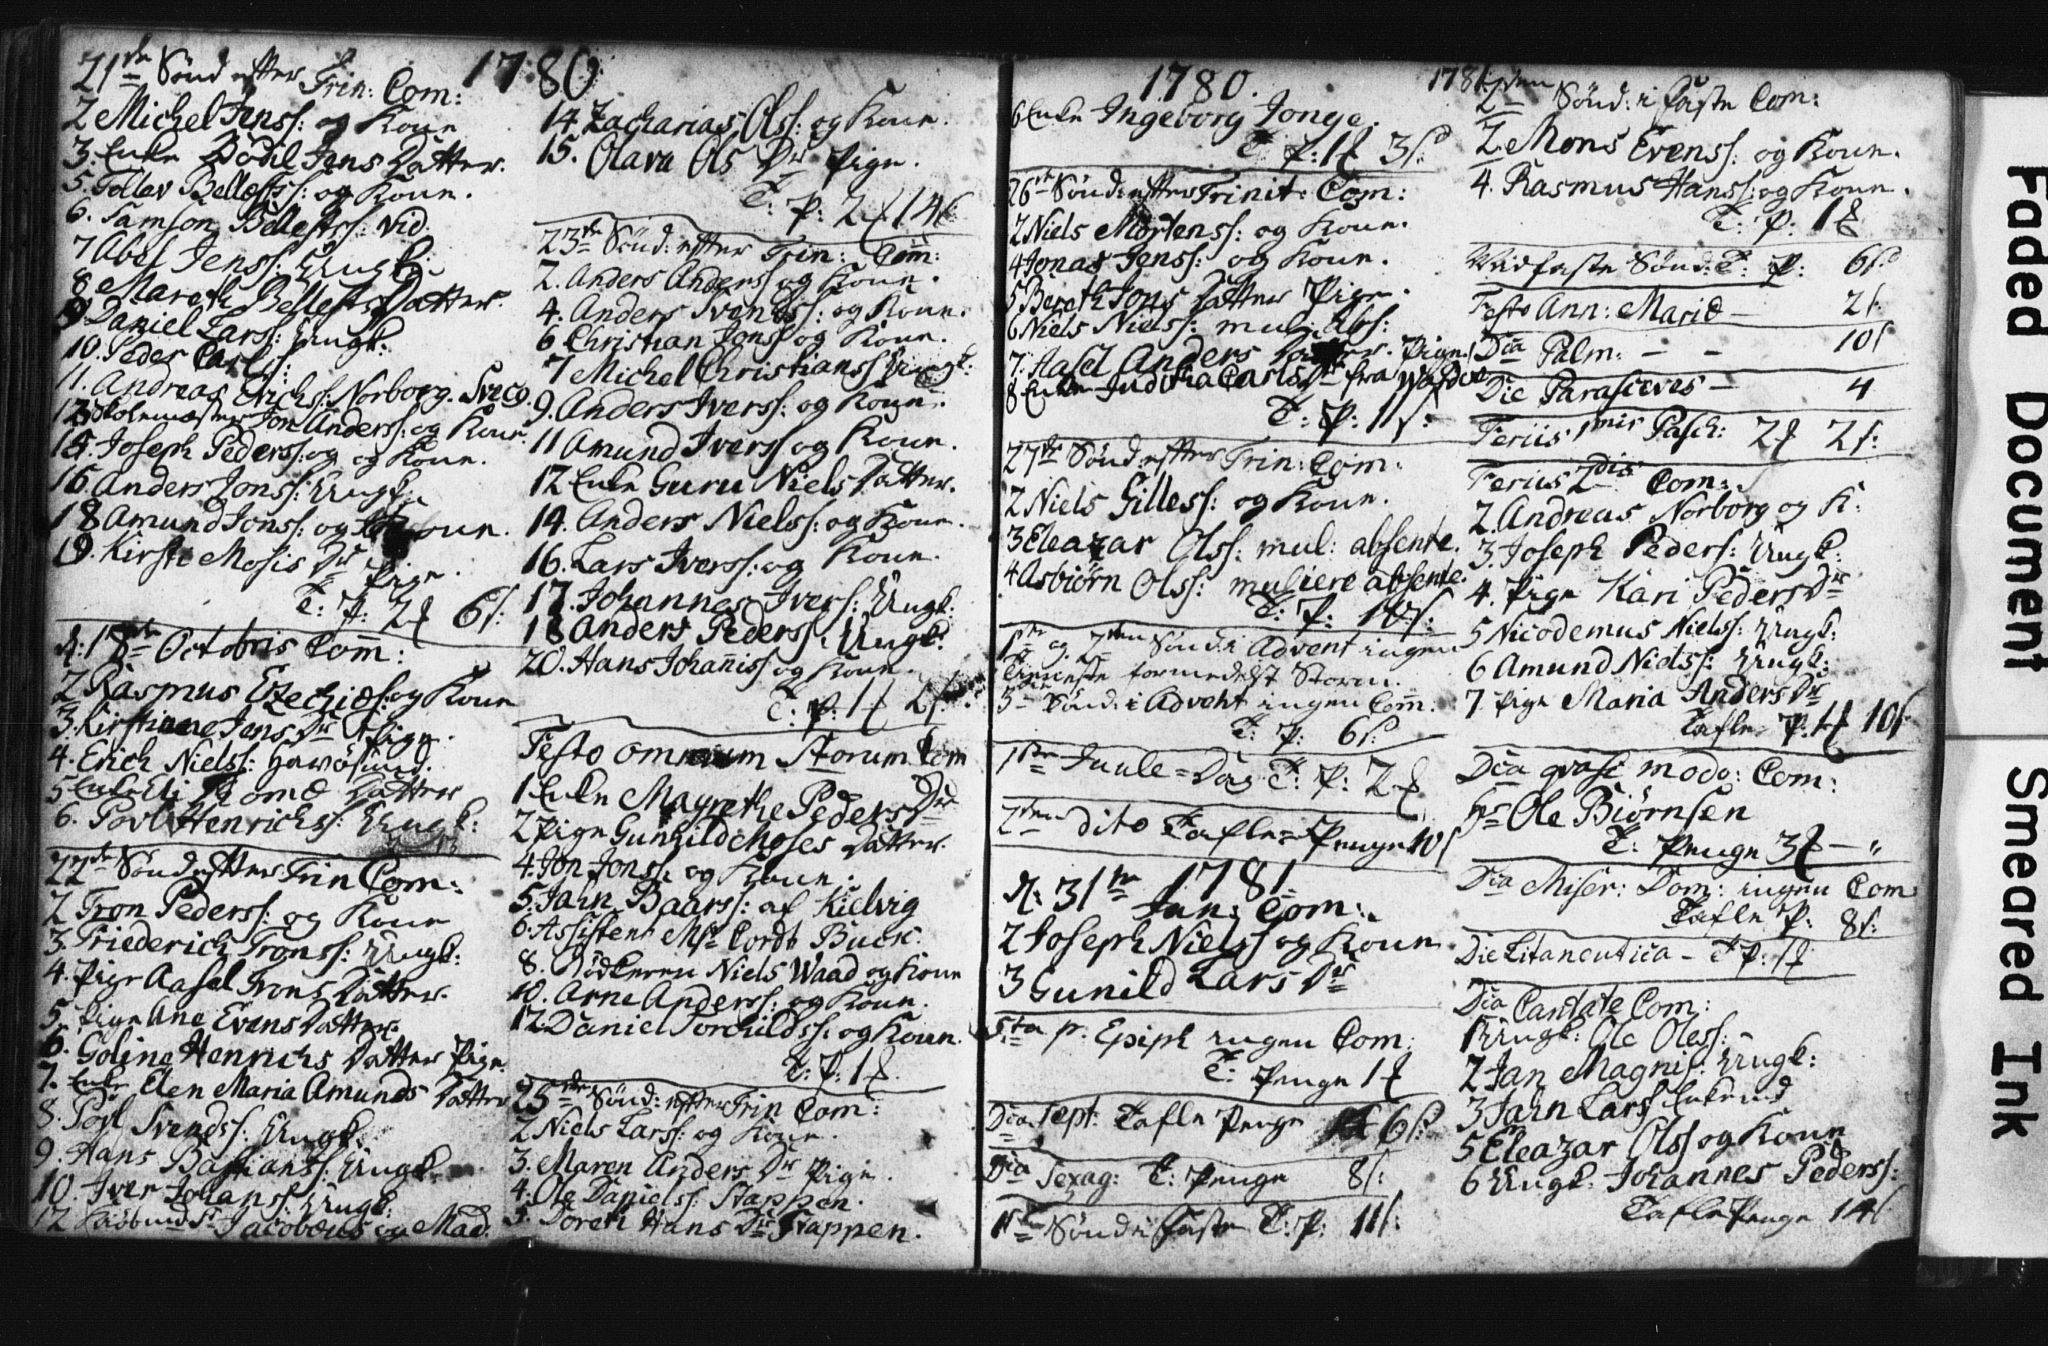 1780
21de Sønd efter Trin: Com:
2 Michel Jenss: og Kone
3. Enke Bodil Jens Datter.
5. Tollav Bellesss: og Kone.
6. Samson Bellesss: vid
7 Abel Jenss: Ungk:
8 Mareth Belless Datter.
9 Daniel Larss: Ungk:
10. Peder Carls:
11. Andreas Erichs: Norborg. Svec9.
13 Skolemæster Jon Anderss: og Kone.
14. Joseph Pederss: og og Kone.
16 Anders Jonss: Ungk.
18 Amund Jonss: og Kone.
19. Kirsti Mosis Dr Pige.
T: P: 2f 6s:
d: 18de Octobris Com̄:
2 Rasmus Ezechiels: og Kone
3. Kirstiane Jens Dr Pige.
4. Erich Nielss: Havøsund.
5 Enke Eli Thomæ Datter
6. Povl Henrichss: Ungk:
22de Sønd efter Trin Com:
2 Tron Pederss: og Kone
3. Friederich Tronss: Ungk:
4. Pige Aasel Trons Datter.
5. Pige Ane Evens Datter.
6. Goline Henrichs Datter Pige.
7. Enke Elen Maria Amunds Datter
8. Povl Svendss: Ungk:
9. Hans Bastianss: Ungk.
10. Iver Johanss: Ungk:
12 Kiøbmd Sr Jacobæus og Mad.
14. Zacharias Olss: og Kone.
15. Olava Ols Dr Pige.
T: P: 2f 14s
23de Sønd: efter Trin: Com̄:
2. Anders Anderss og Kone.
4. Anders Svendss: og Kone.
6 Christian Jonss og Kone.
7 Michel Christianss Ungk:
9. Anders Iverss: og Kone.
11 Amund Iverss og Kone.
12 Enke Guru Niels Datter.
14. Anders Nielss: og Kone.
16. Lars Iverss: og Kone.
17. Johannes Ivers: Ungk:
18 Anders Pederss: Ungk:
20. Hans Johaniss og Kone.
T: P: 1f 2s.
Festo omnium Storum Com
1 Enke Magrethe Peders Dr
2 Pige Gunhild Moses Datter.
4. Jon Jonss: og Kone:
5. Jahn Baarss: af Kielvig
6. Assistent Msr Cordt Buck.
8. Bødkeren Niels Waad og Kone
10. Arne Anderss: og Kone.
12 Daniel Torchildss: og Konen.
T: P: 1f.
25de Sønd: efter Trin Com:
2 Niels Larss: og Kone.
3. Maren Anders Dr Pige.
4. Ole Danielss: Stappen.
5. Doreth Hans Dr Stappen.
1780.
6 Enke Ingeborg Jonge.
T: P: 1f 3s.
26de Sønd: efter Trinit: Com:
2 Niels Mortenss: og Kone.
4 Jonas Jenss: og Kone.
5 Bereth Jons Datter Pige.
6 Niels Nielss: mul: abs:
7. Aasel Anders Datter. Pige.
8 Enke Juditha Carls Dr fra
T: P: 11s:
27de Sønd efter Trin: Com:
2 Niels Gilless: og Kone.
3 Eleazar Olss: mul: absente.
4 Asbiørn Olss: muliere absente.
T: P: 10s:
1ste og 2den Sønd: i Advent ingen
Tieneste formedelst Storm.
3die Sønd: i Advent ingen Com̄.
T: P: 6s.
1ste Juule-Dag T: P: 2f
2den dito Tafle-Penge 10s
1781
d: 31te Jan: Com:
2 Joseph Nielss og Kone
3 Gunild Lars Dr
5ta p. Epiph ingen Com:
T: Penge 1f
Dca Sept: Tafle Penge 6s.
Dca Sexag: T: Penge 8s:
1ste Sønd: i Faste T: P: 11s:
1781.
2den Sønd: i Faste Com:
2. Mons Evenss: og Kone.
4. Rasmus Hanss: og Kone.
T: P: 1f
Midfaste Sønd: T: P: 6s.
Festo Ann: Mariæ — 2s.
Dca Palm: — — 10s
Die Parasceves — 4
Feriis 1mis Pasch: 2f 2s:
Feriis 2dis Com:
2. Andreas Norborg og K:
3. Joseph Peders: Ungk:
4. Pige Kari Peders Dr
5 Nicodemus Nielss: Ungk:
6 Amund Nielss: Ungk:
7 Pige Maria Anders Dr
Tafle P. 1f 10s
Dca qvasi modo: Com:
Hr Ole Biørnsen
T: Penge 3f — "
Dca Miser: Dom: ingen Com
Tafle P: 8s:
Die Litaneutica — T: P: 1f
Dca Cantate Com:
1 Ungk: Ole Oless:
2 Jan Magniss: Ungk:
3 Jahn Larss Enkemd
5 Eleazar Olss og Kone
6 Ungk: Johannes Pederss:
Tafle Penge 14s
Faded Document
Smeared Ink